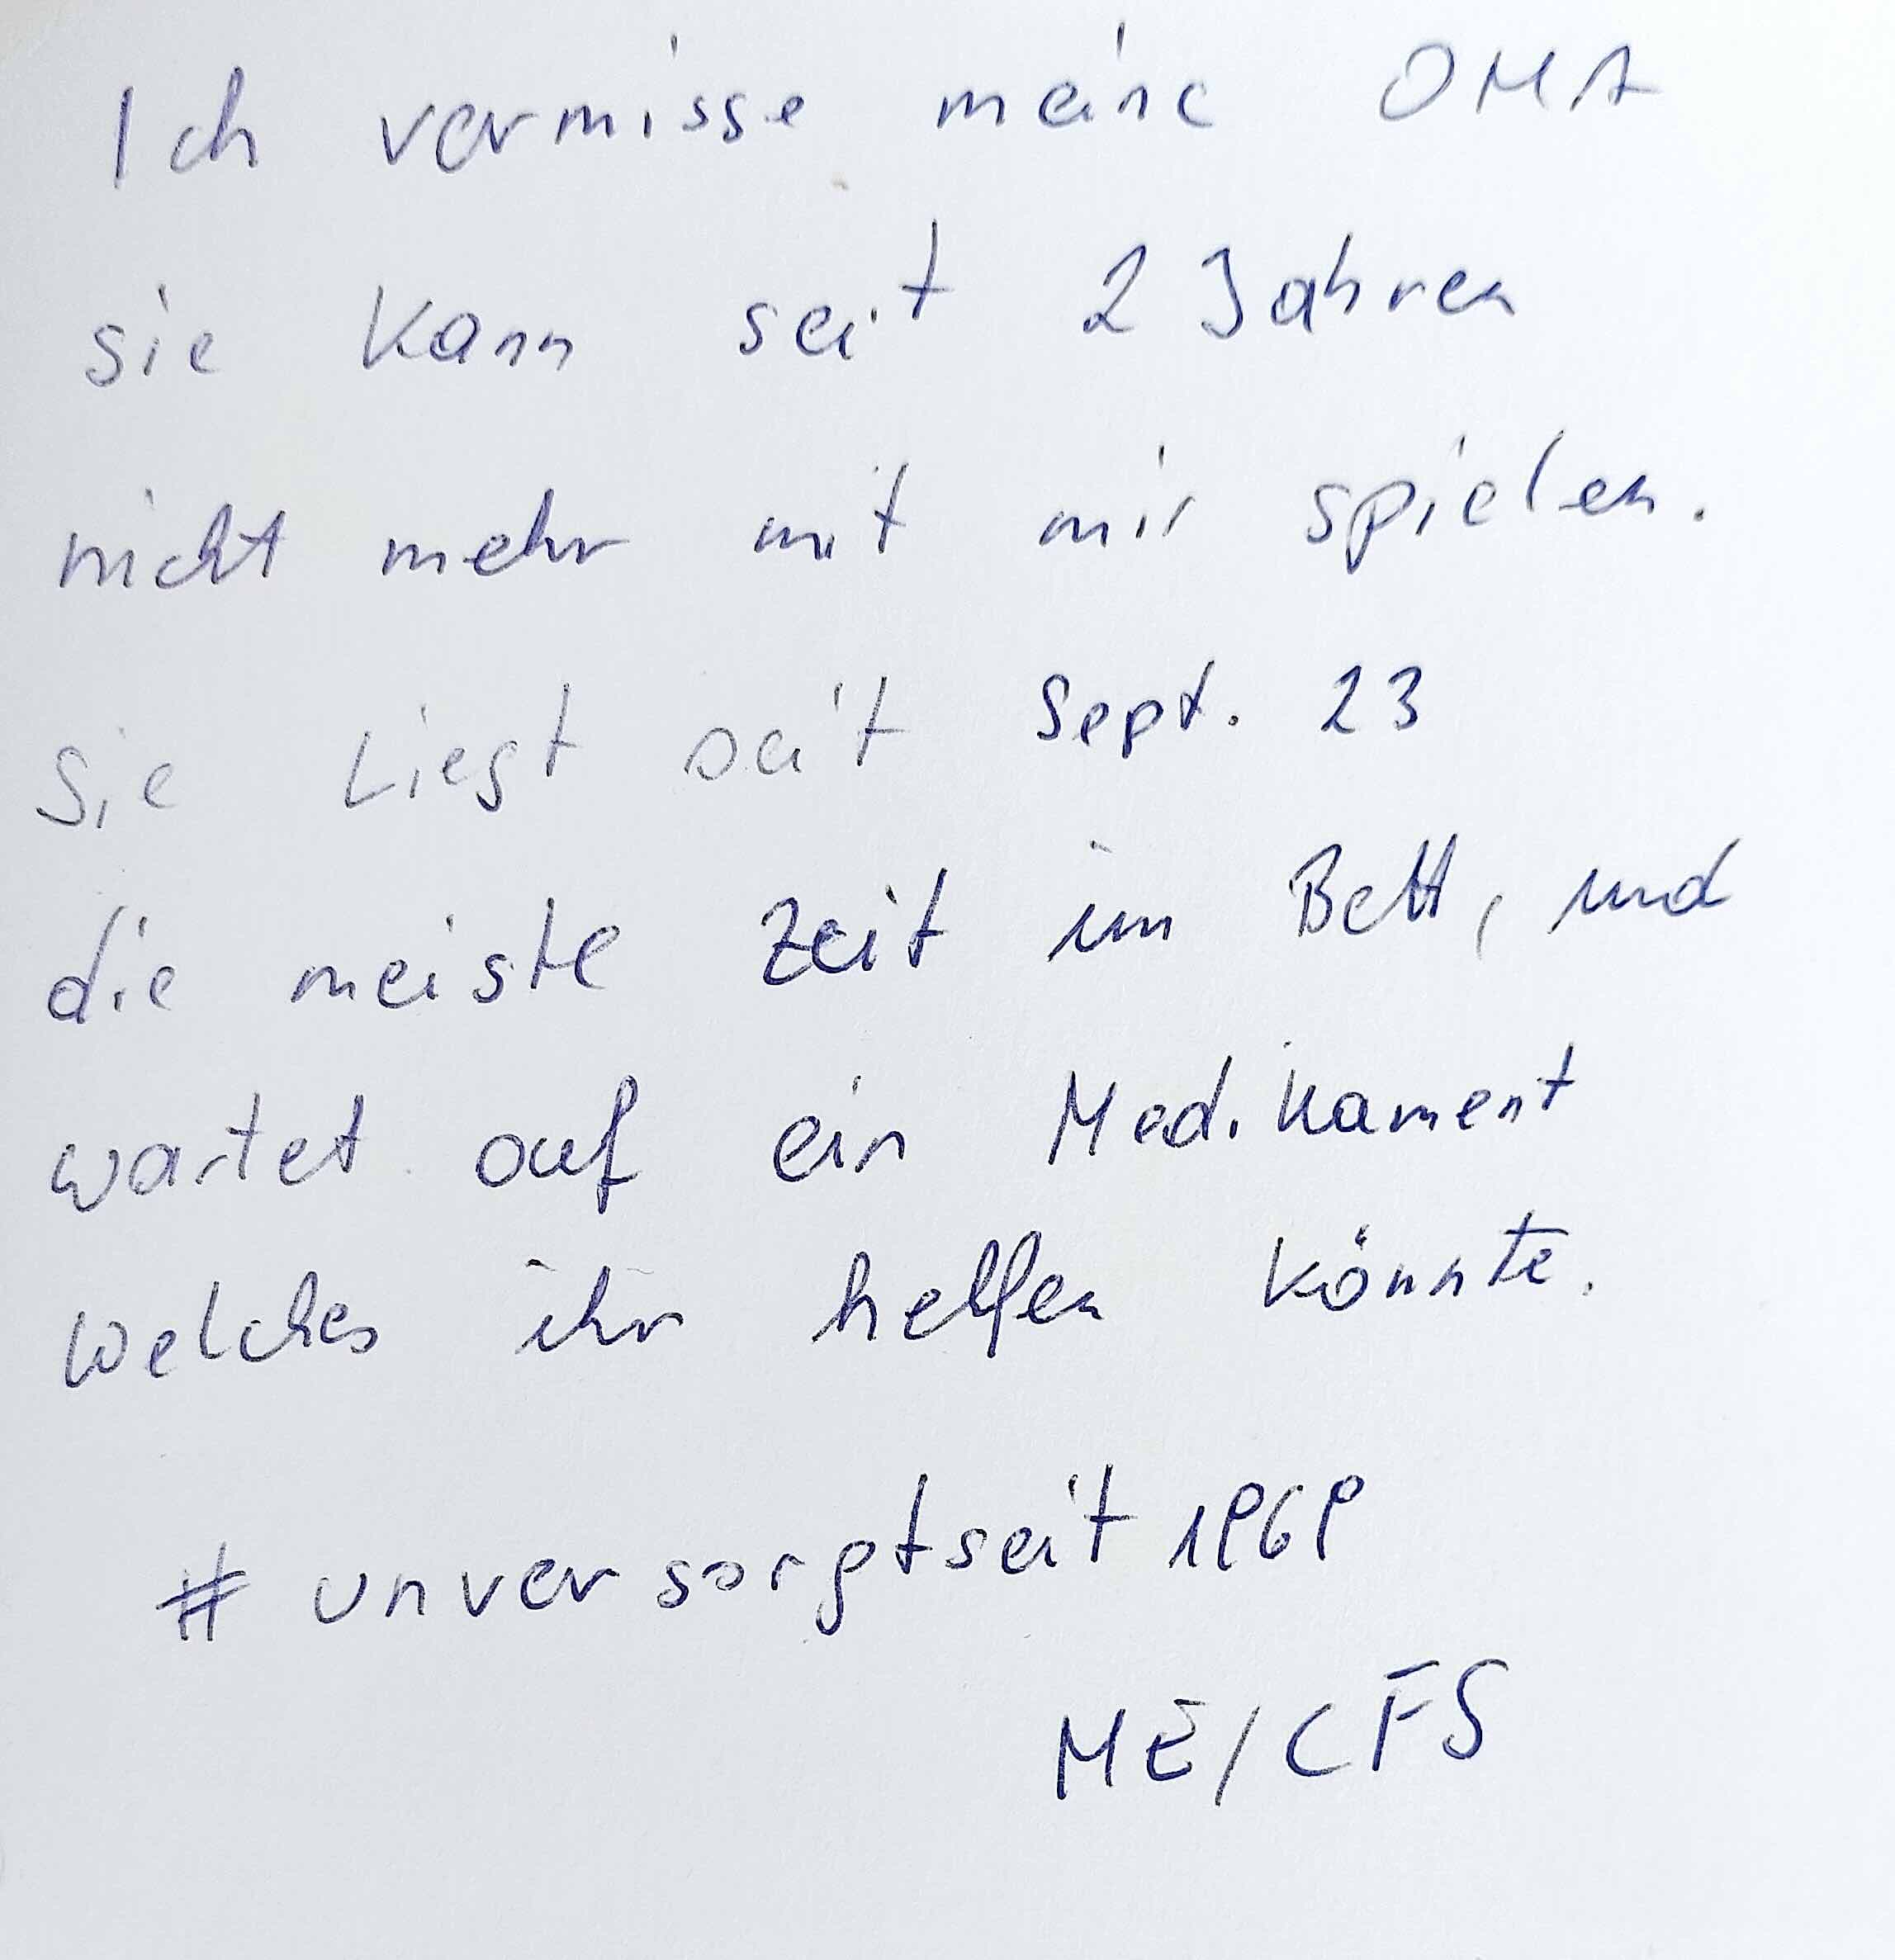 Ich vermisse meine OMA
sie kann seit 2 Jahren
nicht mehr mit mir spielen.
Sie Liegt seit Sept. 23
die meiste Zeit im Bett, und
wartet auf ein Medikament
welches ihr helfen könnte.
# unversorgtseit 1969
ME/CFS